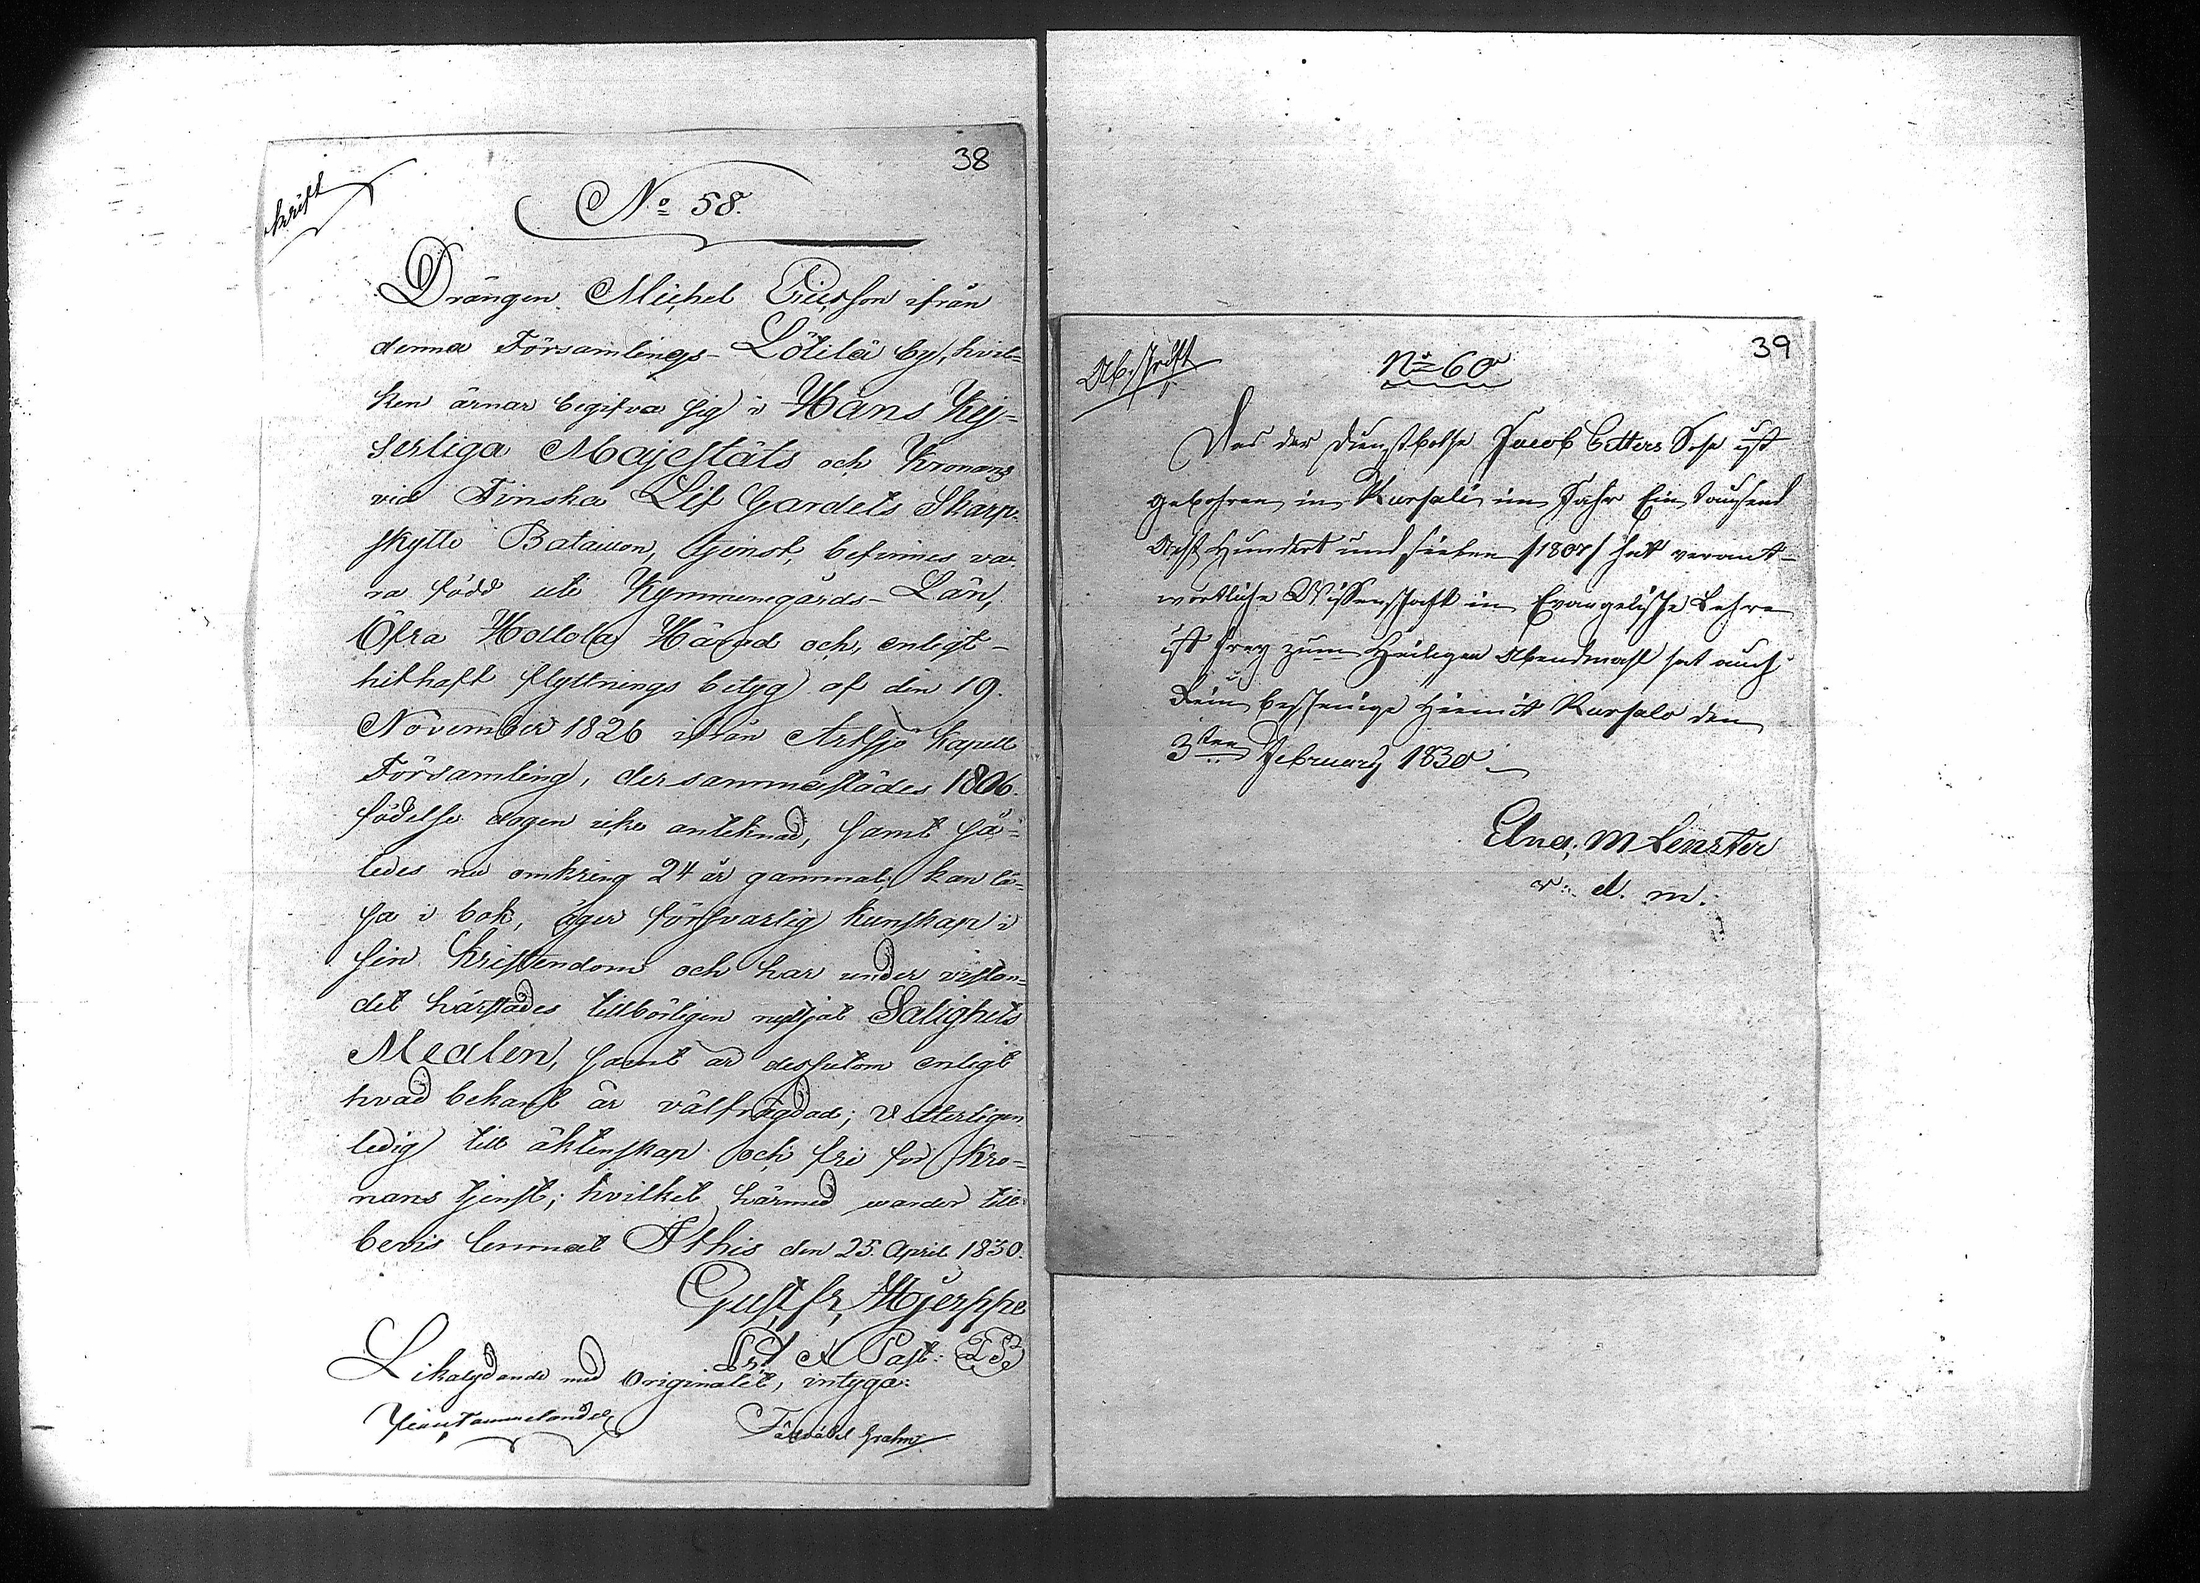 38
krift
No 58.
Drängen Michel Ericsson ifrån
denna Församlings Lötilä by, hvil=
ken ärnar begifva sig i Hans Kej=
serliga Majestäts och Kronans
vid Finska Lif Gardets Skarp-
skytte Bataillon, tjenst, befinnes va-
ra född uti Kymmenegårds Län,
Öfra Hollola Härad och, enligt
hithaft flyttnings betyg af den 19.
November 1826 ifrån Artsjö Kapell
Församling, dersammastädes 1806.
födelse dagen icke anteknad, samt så=
ledes nu omkring 24 år gammal; kan lä=
sa i bok, äger försvarlig kunskap i
sin Kristendom och har under vistan=
det härstädes tillbörligen nyttjat Salighets
Medlen, samt är dessutom enligt
hvad bekant är välfrägdad; Vetterligen
ledig till äktenskap och fri för Kro=
nans tjenst; hvilket härmed warder till
bevis lemnat Ithis den 25. April 1830.
Gust. fr, Hjerppe
A Past: LS
Likalydande med Originalet, intyga:
Fältväbel Grahn
39
Abschrift
No 60
Das der Dienstbothe Jacob Sohn ist
gebohren in Kursali im Jahr Ein tausend
Acht Hundert und sieben /1807/ hat verant-
wortliche Wissenschaft in Evangelische Lehre
ist frey zum Heiligen Abendmahl hat auch
den
3ten February 1830
And: M Lenxter
v: d. m.